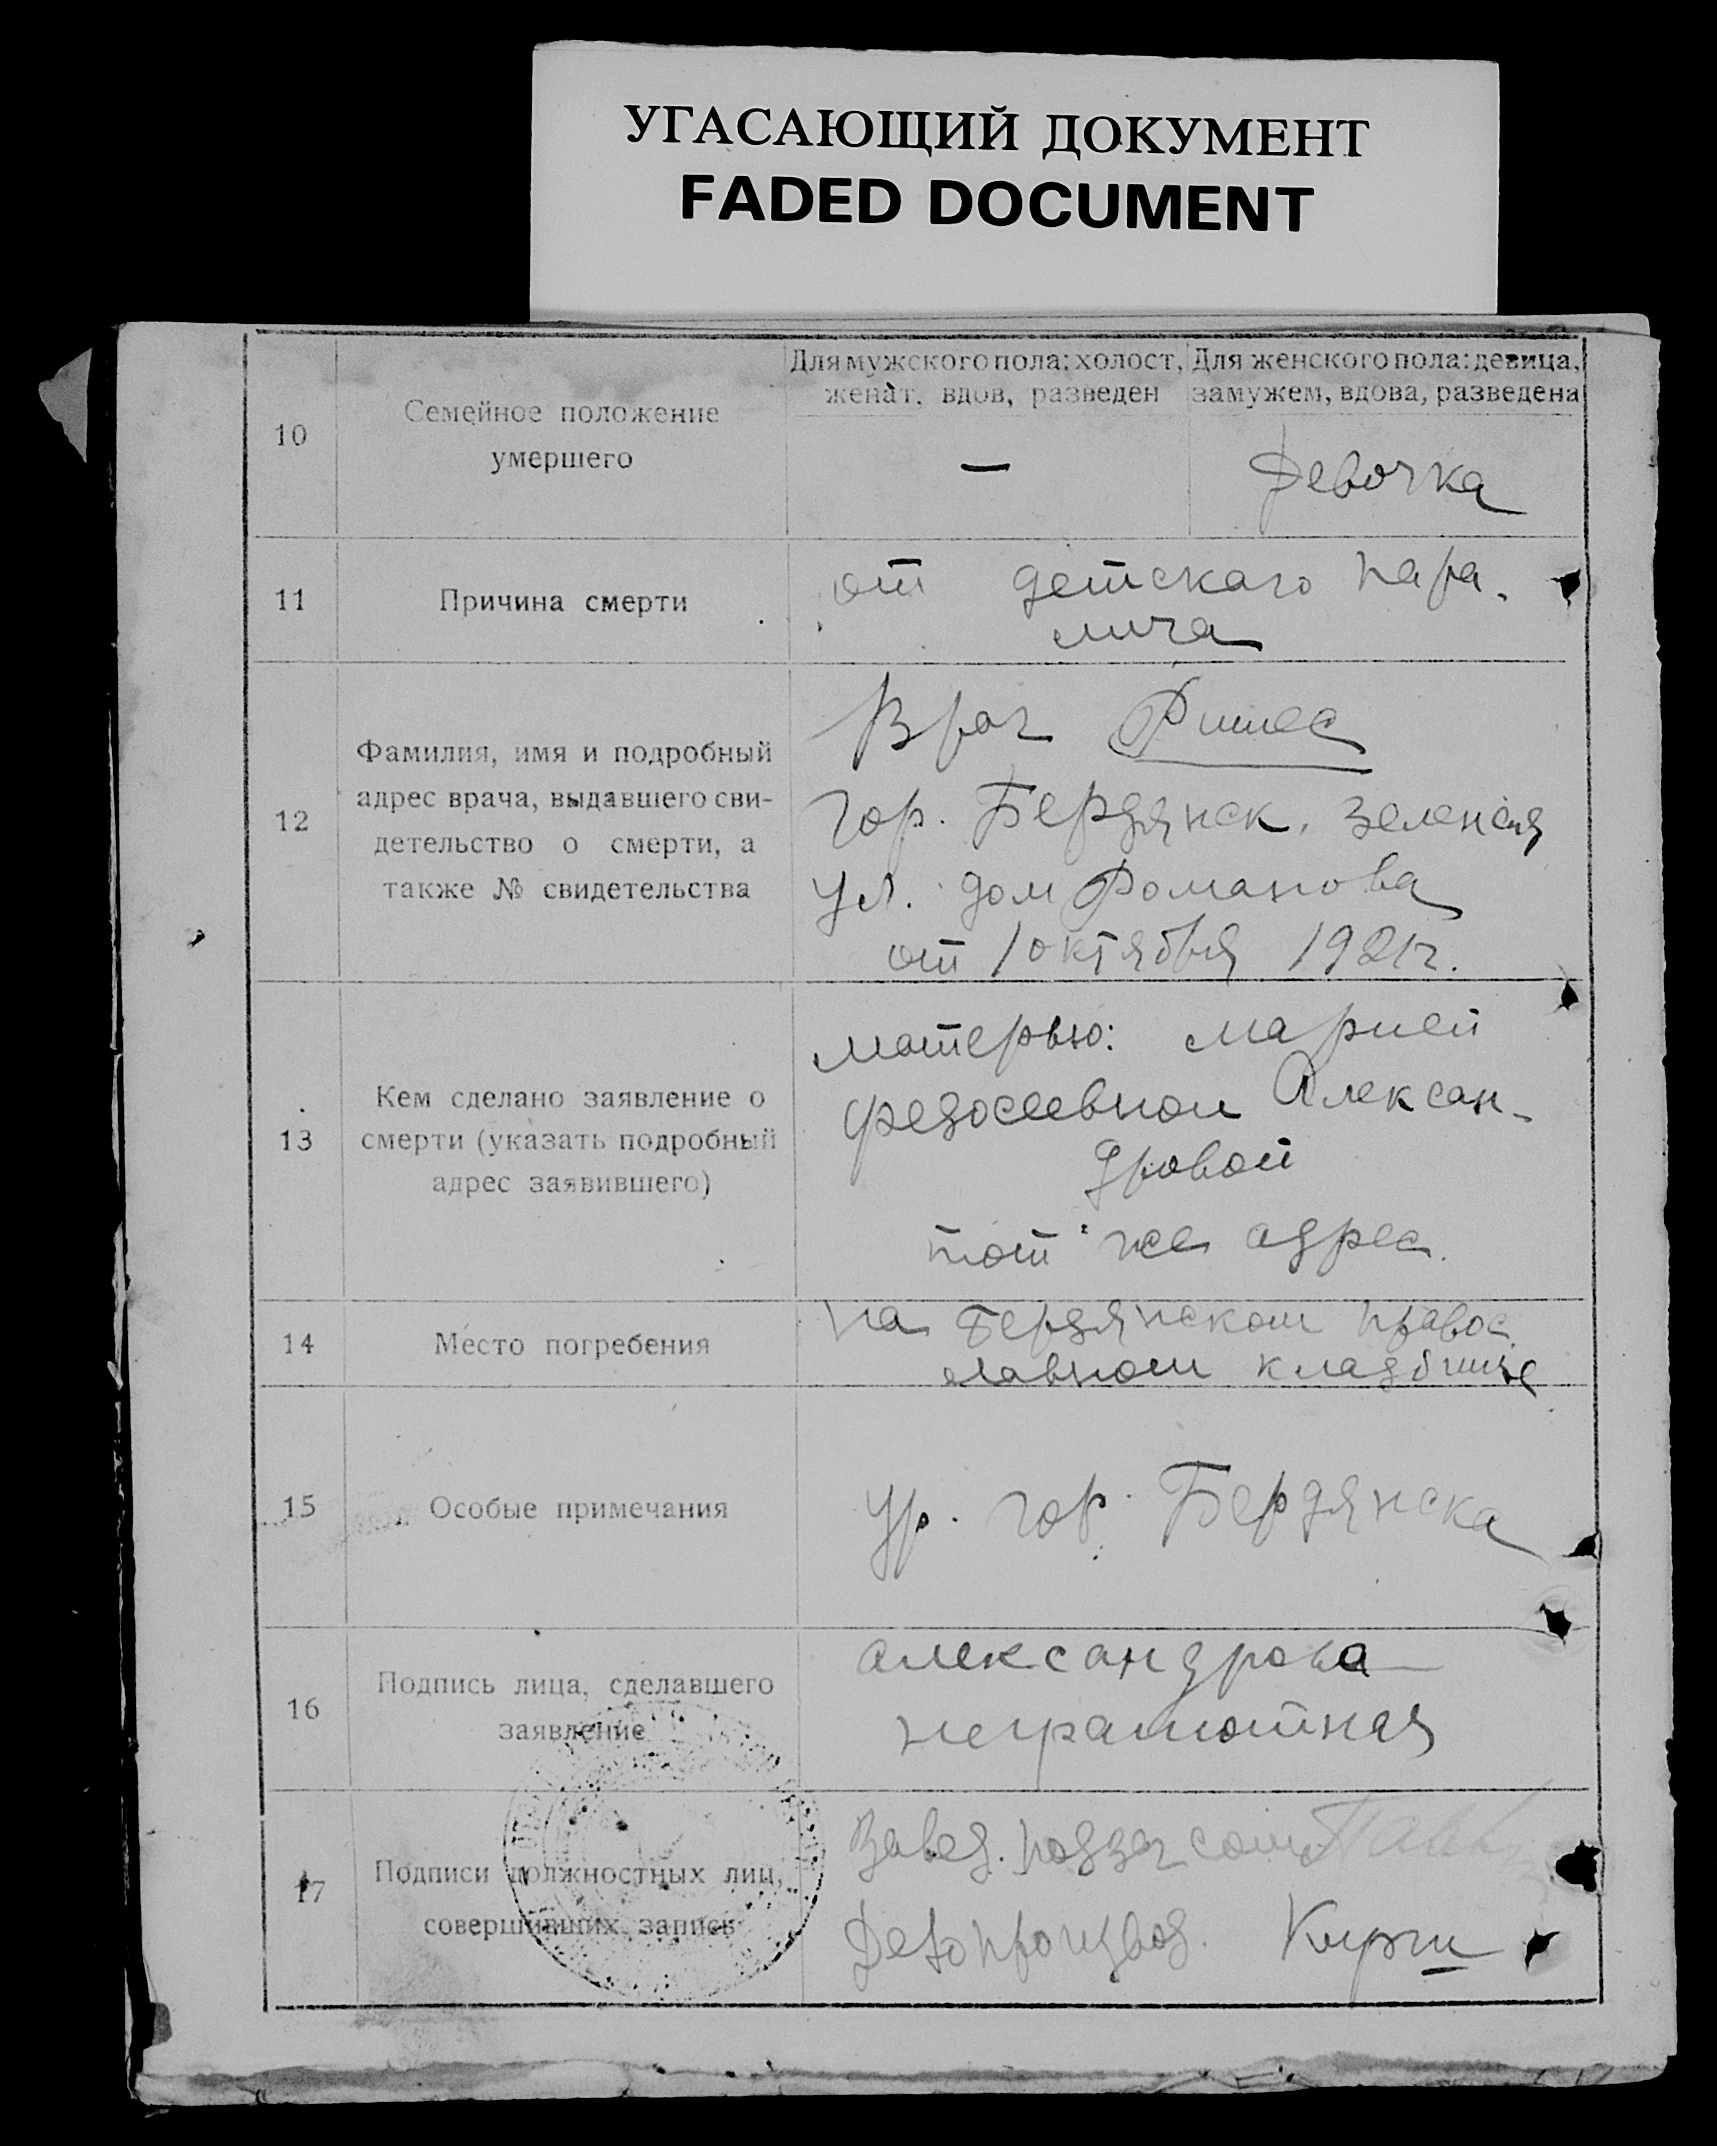 УГАСАЮЩИЙ ДОКУМЕНТ
FADED DOCUMENT
10
Семейное положение
умершего
Для мужского пола: холост,
женат, вдов, разведен
—
Для женского пола: девица,
замужем, вдова, разведена
Девочка
11
Причина смерти
от детскаго пара-
лича
12
Фамилия, имя и подробный
адрес врача, выдавшего сви-
детельство о смерти, а
также № свидетельства
Врач
гор. Бердянск. Зеленая
ул. дом Романова
от 1 октября 1921 г.
13
Кем сделано заявление о
смерти (указать подробный
адрес заявившего)
матерью: Марией
Федосеевной Алексан-
дровой
тот же адрес.
14
Место погребения
на Бердянском правос
лавном кладбище
15
Особые примечания
ур. гор. Бердянска
16
Подпись лица, сделавшего
заявление
Александрова
неграмотная
17
Подписи должностных лиц,
совершивших запись
Завед. подзаг
Делопроизвод. Кирш